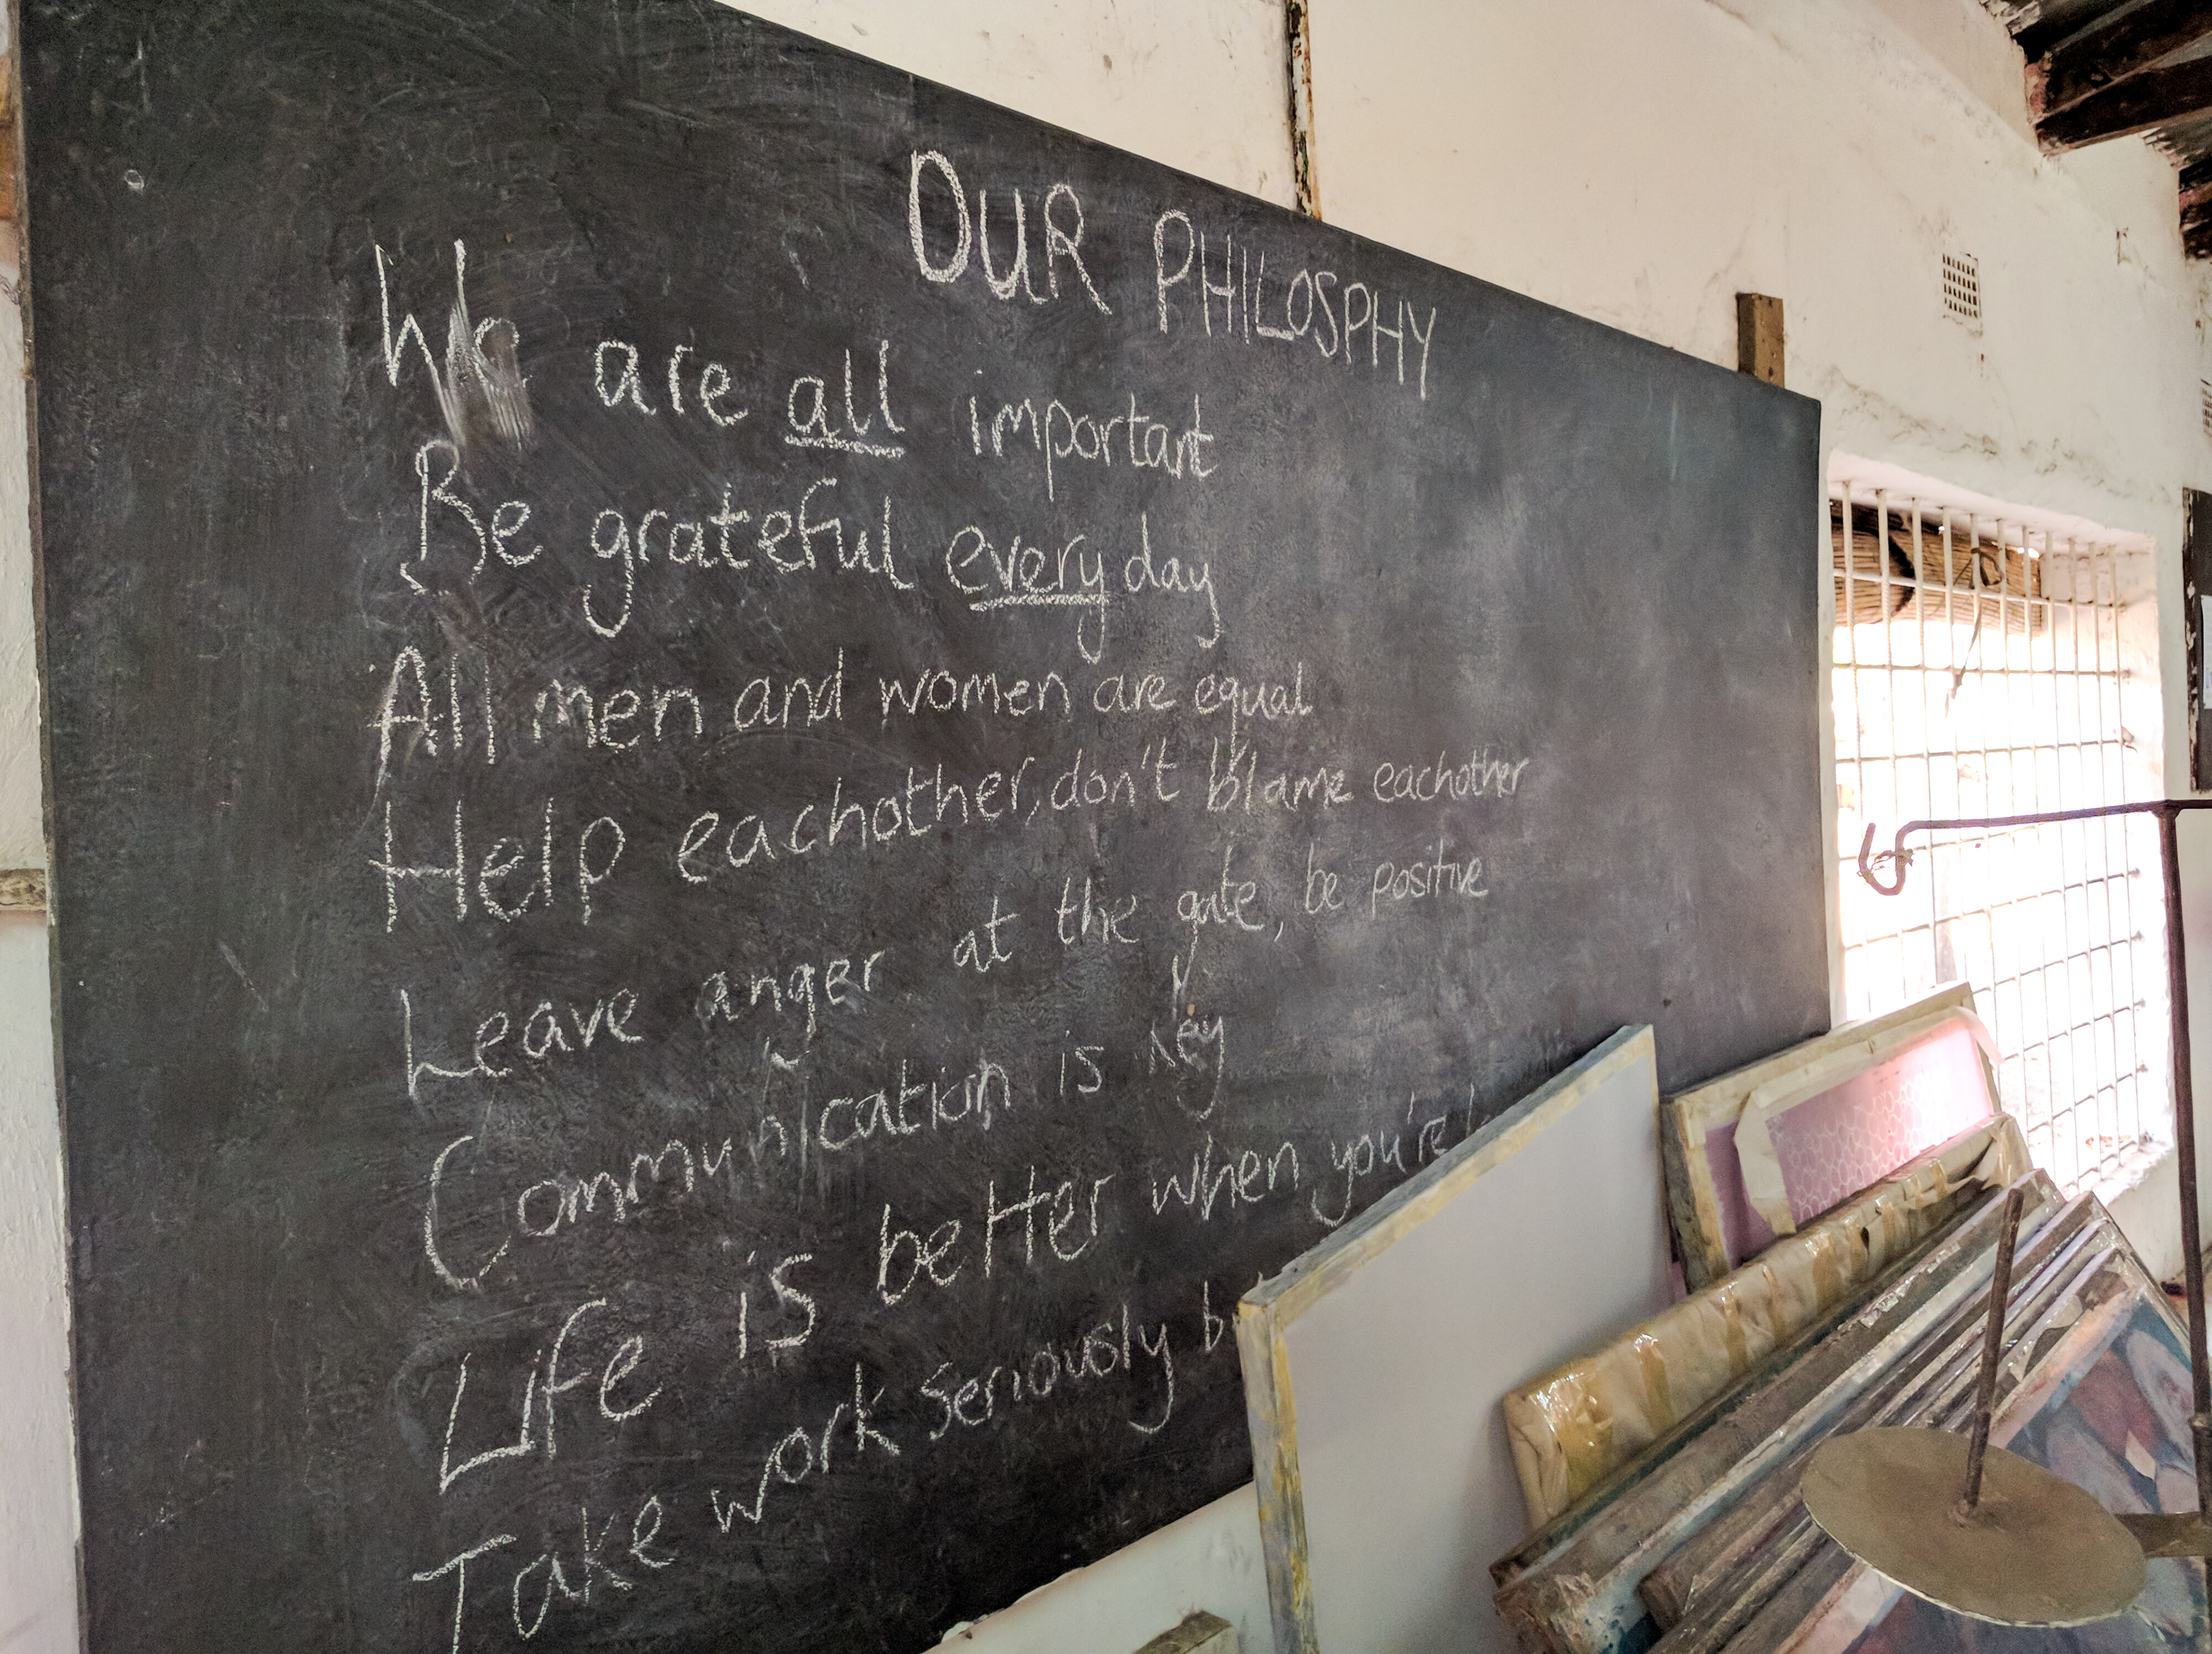 OUR PHILOSPHY
We are all important
Be grateful every day
All men and women are equal
Help eachother, don't blame eachother
Leave anger at the gate, be positive
Communication is key
Life is better when you're
Take work seriously